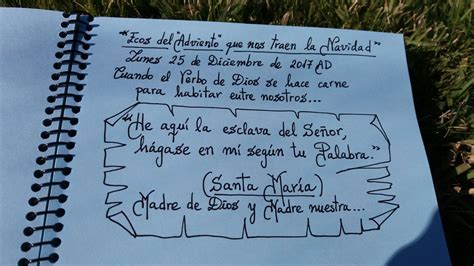 "Ecos del "Adviento" que nos traen la Navidad"
Lunes 25 de Diciembre de 2017 AD
Cuando el Verbo de Dios se hace carne
para habitar entre nosotros...
"He aquí la esclava del Señor,
hágase en mí según tu Palabra."
(Santa María)
Madre de Dios y Madre nuestra...